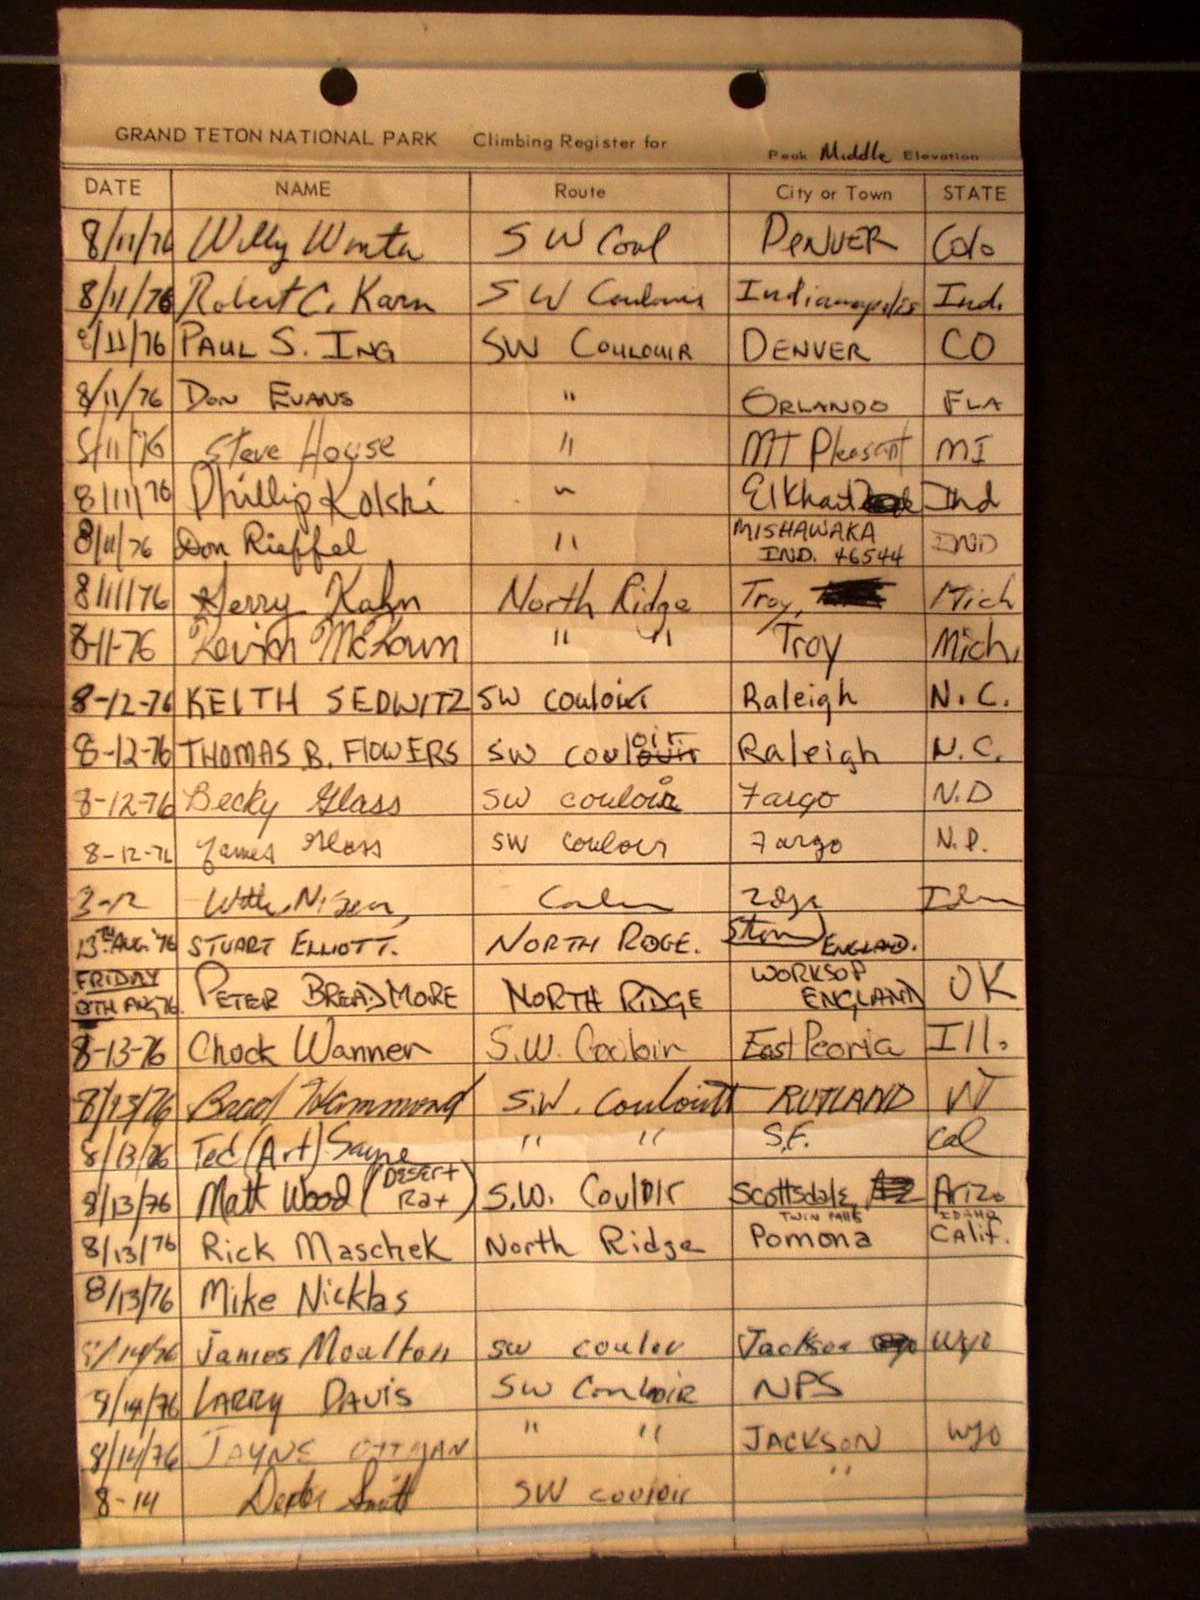 GRAND TETON NATIONAL PARK Climbing Register for Peak Middle Elevation
DATE NAME Route City or Town STATE
8/11/76 Willy SW Coul DENVER Colo
8/11/76 Robert C. Karn SW Indianapolis Ind.
8/11/76 PAUL S. ING SW COULOUIR DENVER CO
8/11/76 DON EVANS " ORLANDO FLA
8/11/76 Steve House " MT Pleasant MI
8/11/76 Phillip Kolski " Elkhart Ind
8/11/76 Don Rieffel " MISHAWAKA IND. 46544 IND
8/11/76 Jerry Kahn North Ridge Troy, Mich
8-11-76 Kevin McKown " " Troy Mich.
8-12-76 KEITH SEDWITZ SW couloir Raleigh N.C.
8-12-76 THOMAS B. FLOWERS SW couloir Raleigh N.C.
8-12-76 Becky Glass SW couloir Fargo N.D
8-12-76 James Glass SW Coulour Fargo N.D.
13TH AUG '76 STUART ELLIOTT. NORTH RDGE. ENGLAND.
FRIDAY 13TH AUG 76. PETER BREADMORE NORTH RIDGE WORKSOP ENGLAND UK
8-13-76 Chuck Wanner S.W. East Peoria Ill.
8/13/76 Brad Hammond S.W. RUTLAND VT
8/13/76 Ted (Art) Sayne " " S.F. Cal
8/13/76 Matt Wood (Desert Rat) S.W. Couloir Scottsdale Ariz.
8/13/76 Rick Maschek North Ridge TWIN FALLS Pomona IDAHO Calif.
8/13/76 Mike Nicklas
8/14/76 James Moulton SW coulor Jackson Wyo
8/14/76 LARRY DAVIS SW Couloir NPS
8/14/76 JAYNE OTTMAN " " JACKSON WYO
8-14 Smith SW couloir "